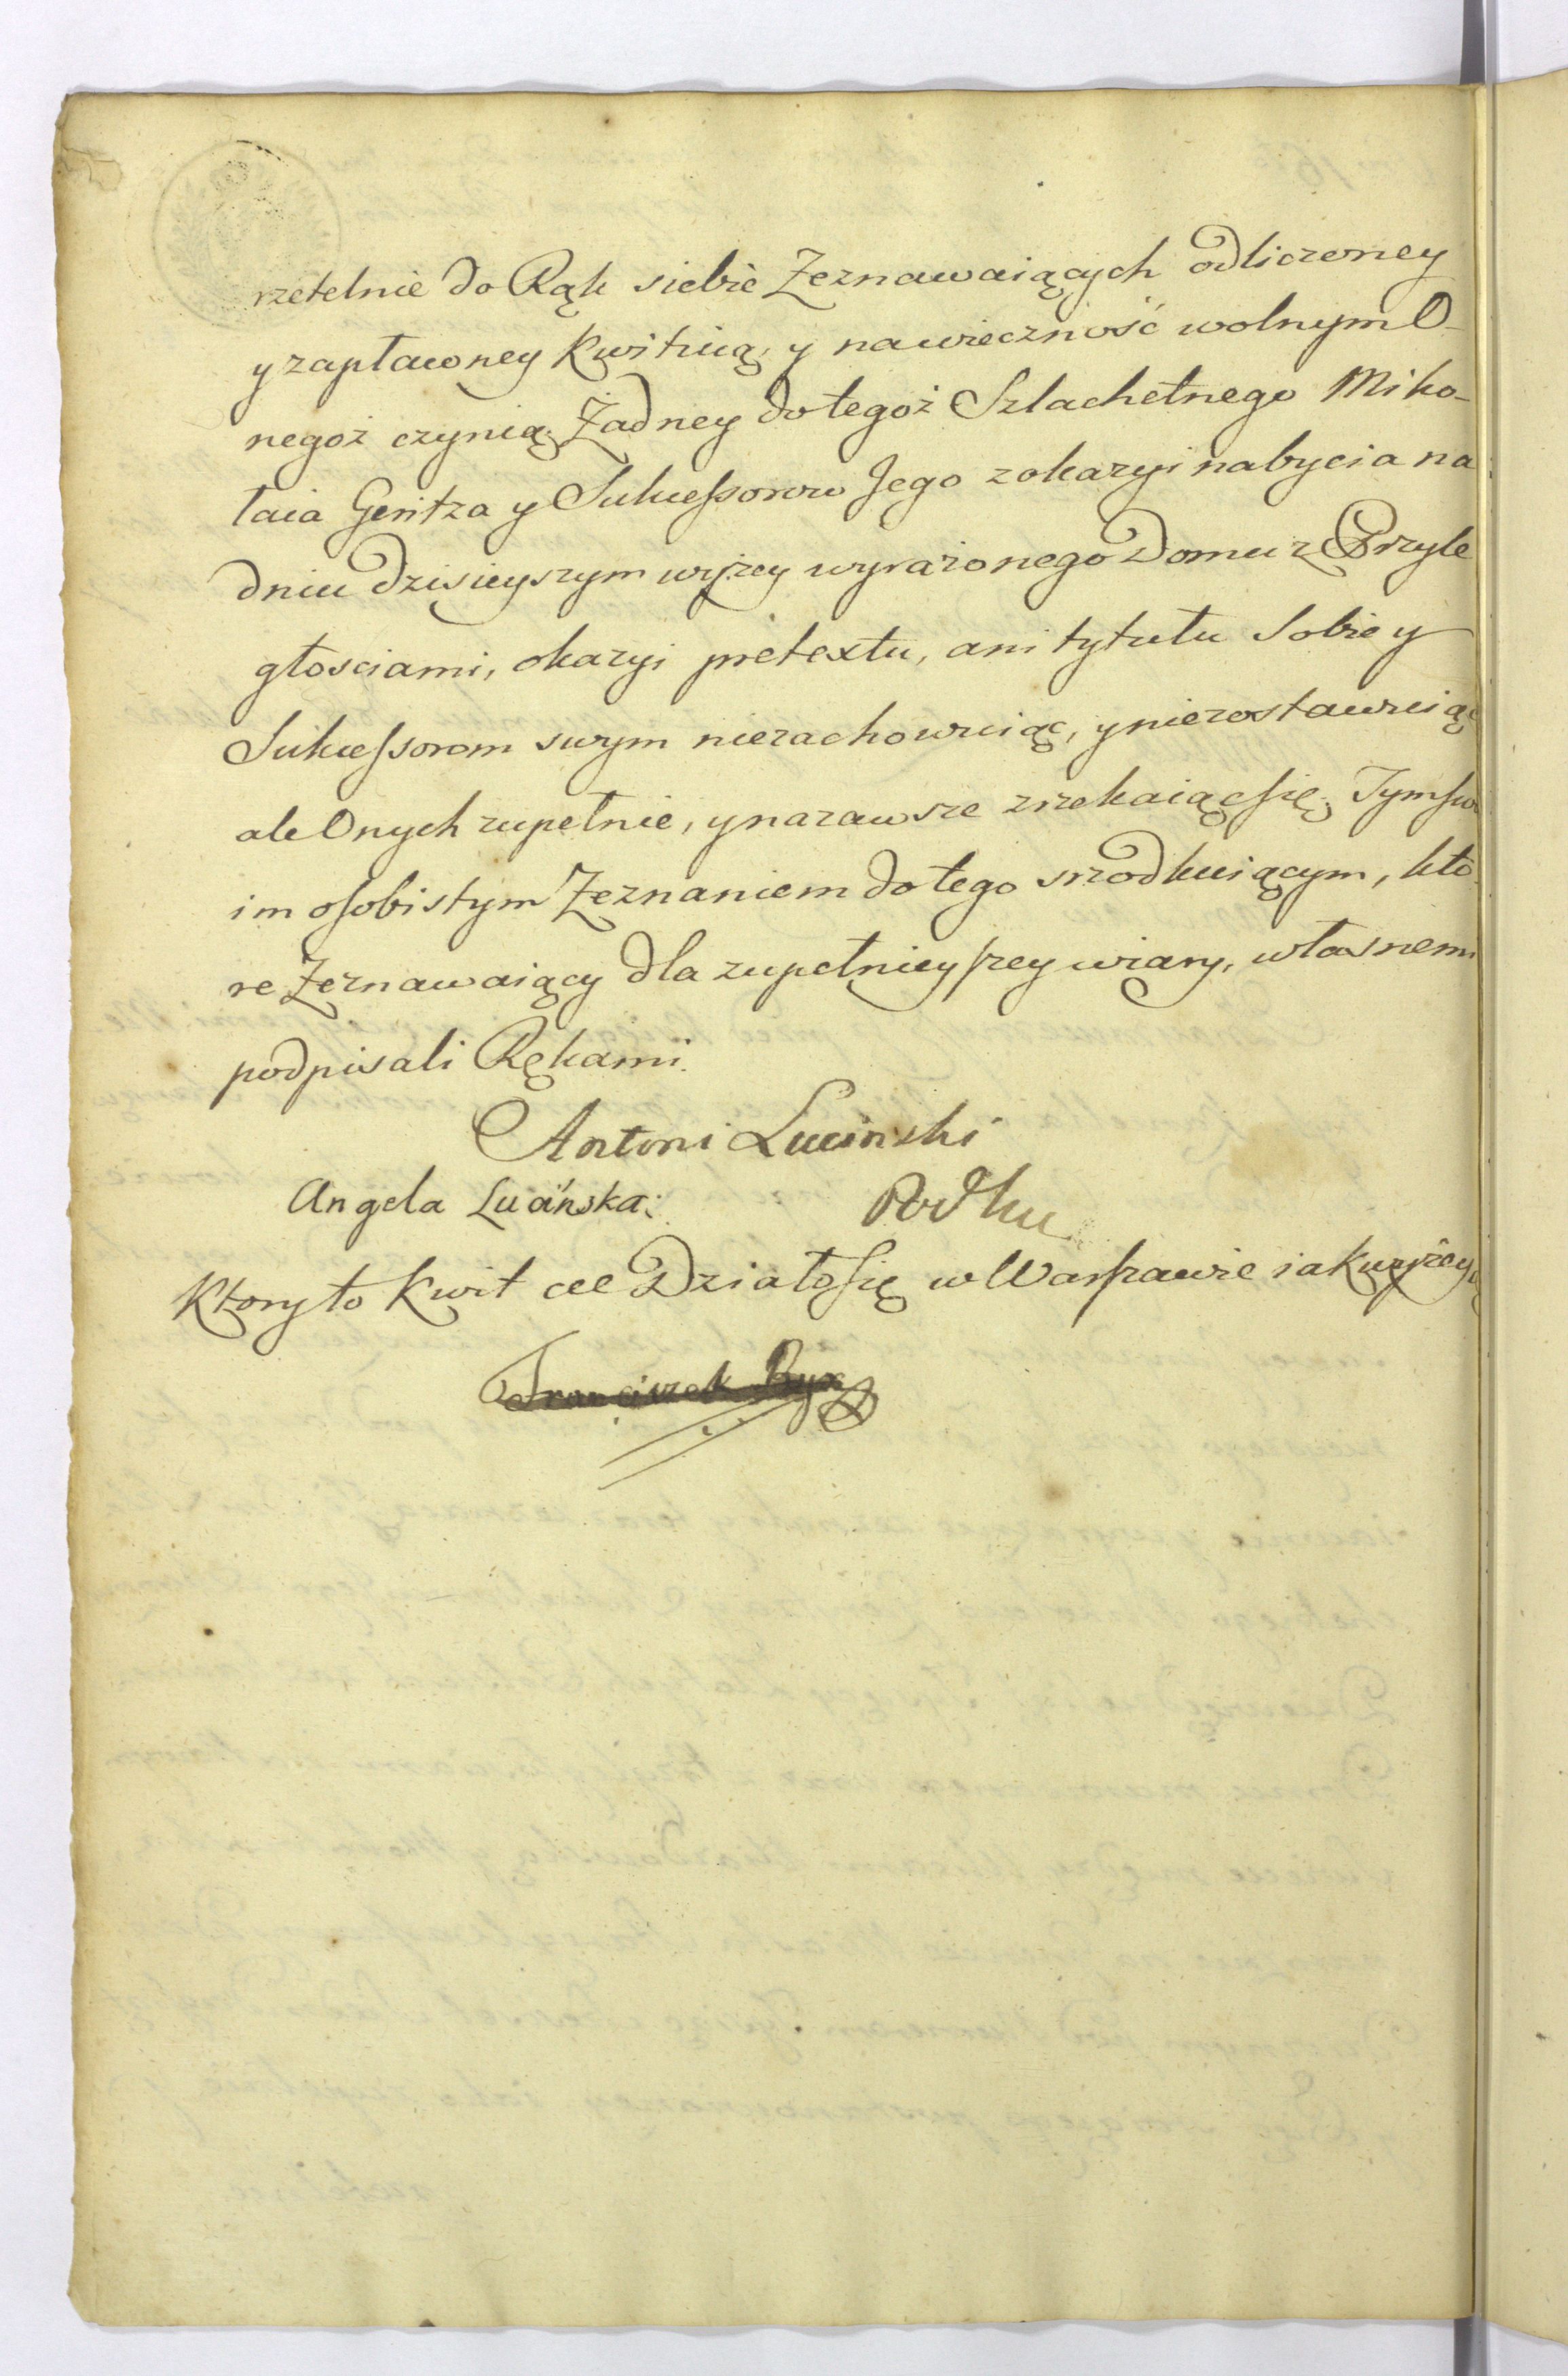 rzetelnie do Rąk siebie Zeznawaiących odliczoney
y zapłaconey kwituią, y nawieczność wolnym O-
negoż czynią. Żadney do tegoż Szlachetnego Miko-
łaia Gentza y Sukcessorow Jego z okazyi nabycia na
dniu dzisieyszym wyżey wyrażonego Domu z Przyle
głosciami, okazyi pretextu, ani tytułu Sobie y
Sukcessorom swym niezachowuiąc, y niezostawuiąc
ale Onych zupełnie, y nazawsze zrzekaiąc się. Tym swo
im osobistym Zeznaniem do tego srzodkuiącym, kto-
re Zeznawaiący dla zupełnieyszey wiary, własnemi
podpisali Rękami.
Antoni Lucinski
Angela Lucińska:
Ktory to kwit ece Działo się w Warszawie iak wyżey
Franciszek Ryx